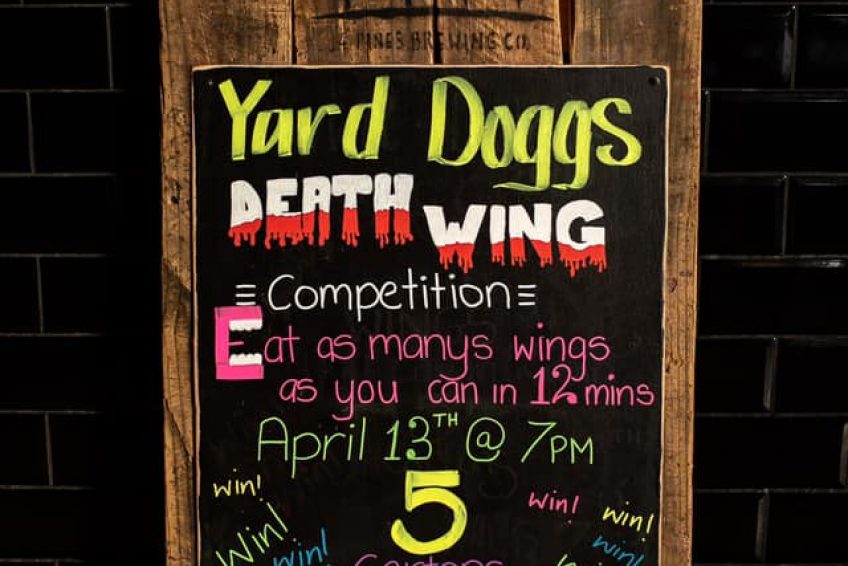 4 PINES BREWING CO.
Yard Doggs
DEATH WING
≡ Competition ≡
Eat as manys wings
as you can in 12 mins
April 13TH @ 7PM
5
win! win! win!
Win! win! win!
Cartons